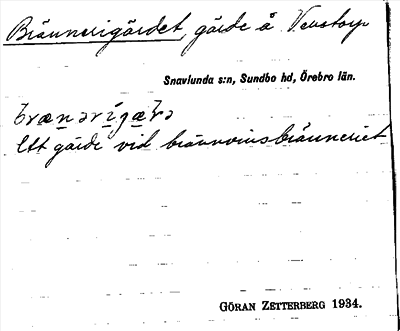 Brännerigärdet, gärde å Vevstorp
Snavlunda s:n, Sundbo hd, Örebro län.
Ett gärde vid brännvinsbränneriet
GÖRAN ZETTERBERG 1934.